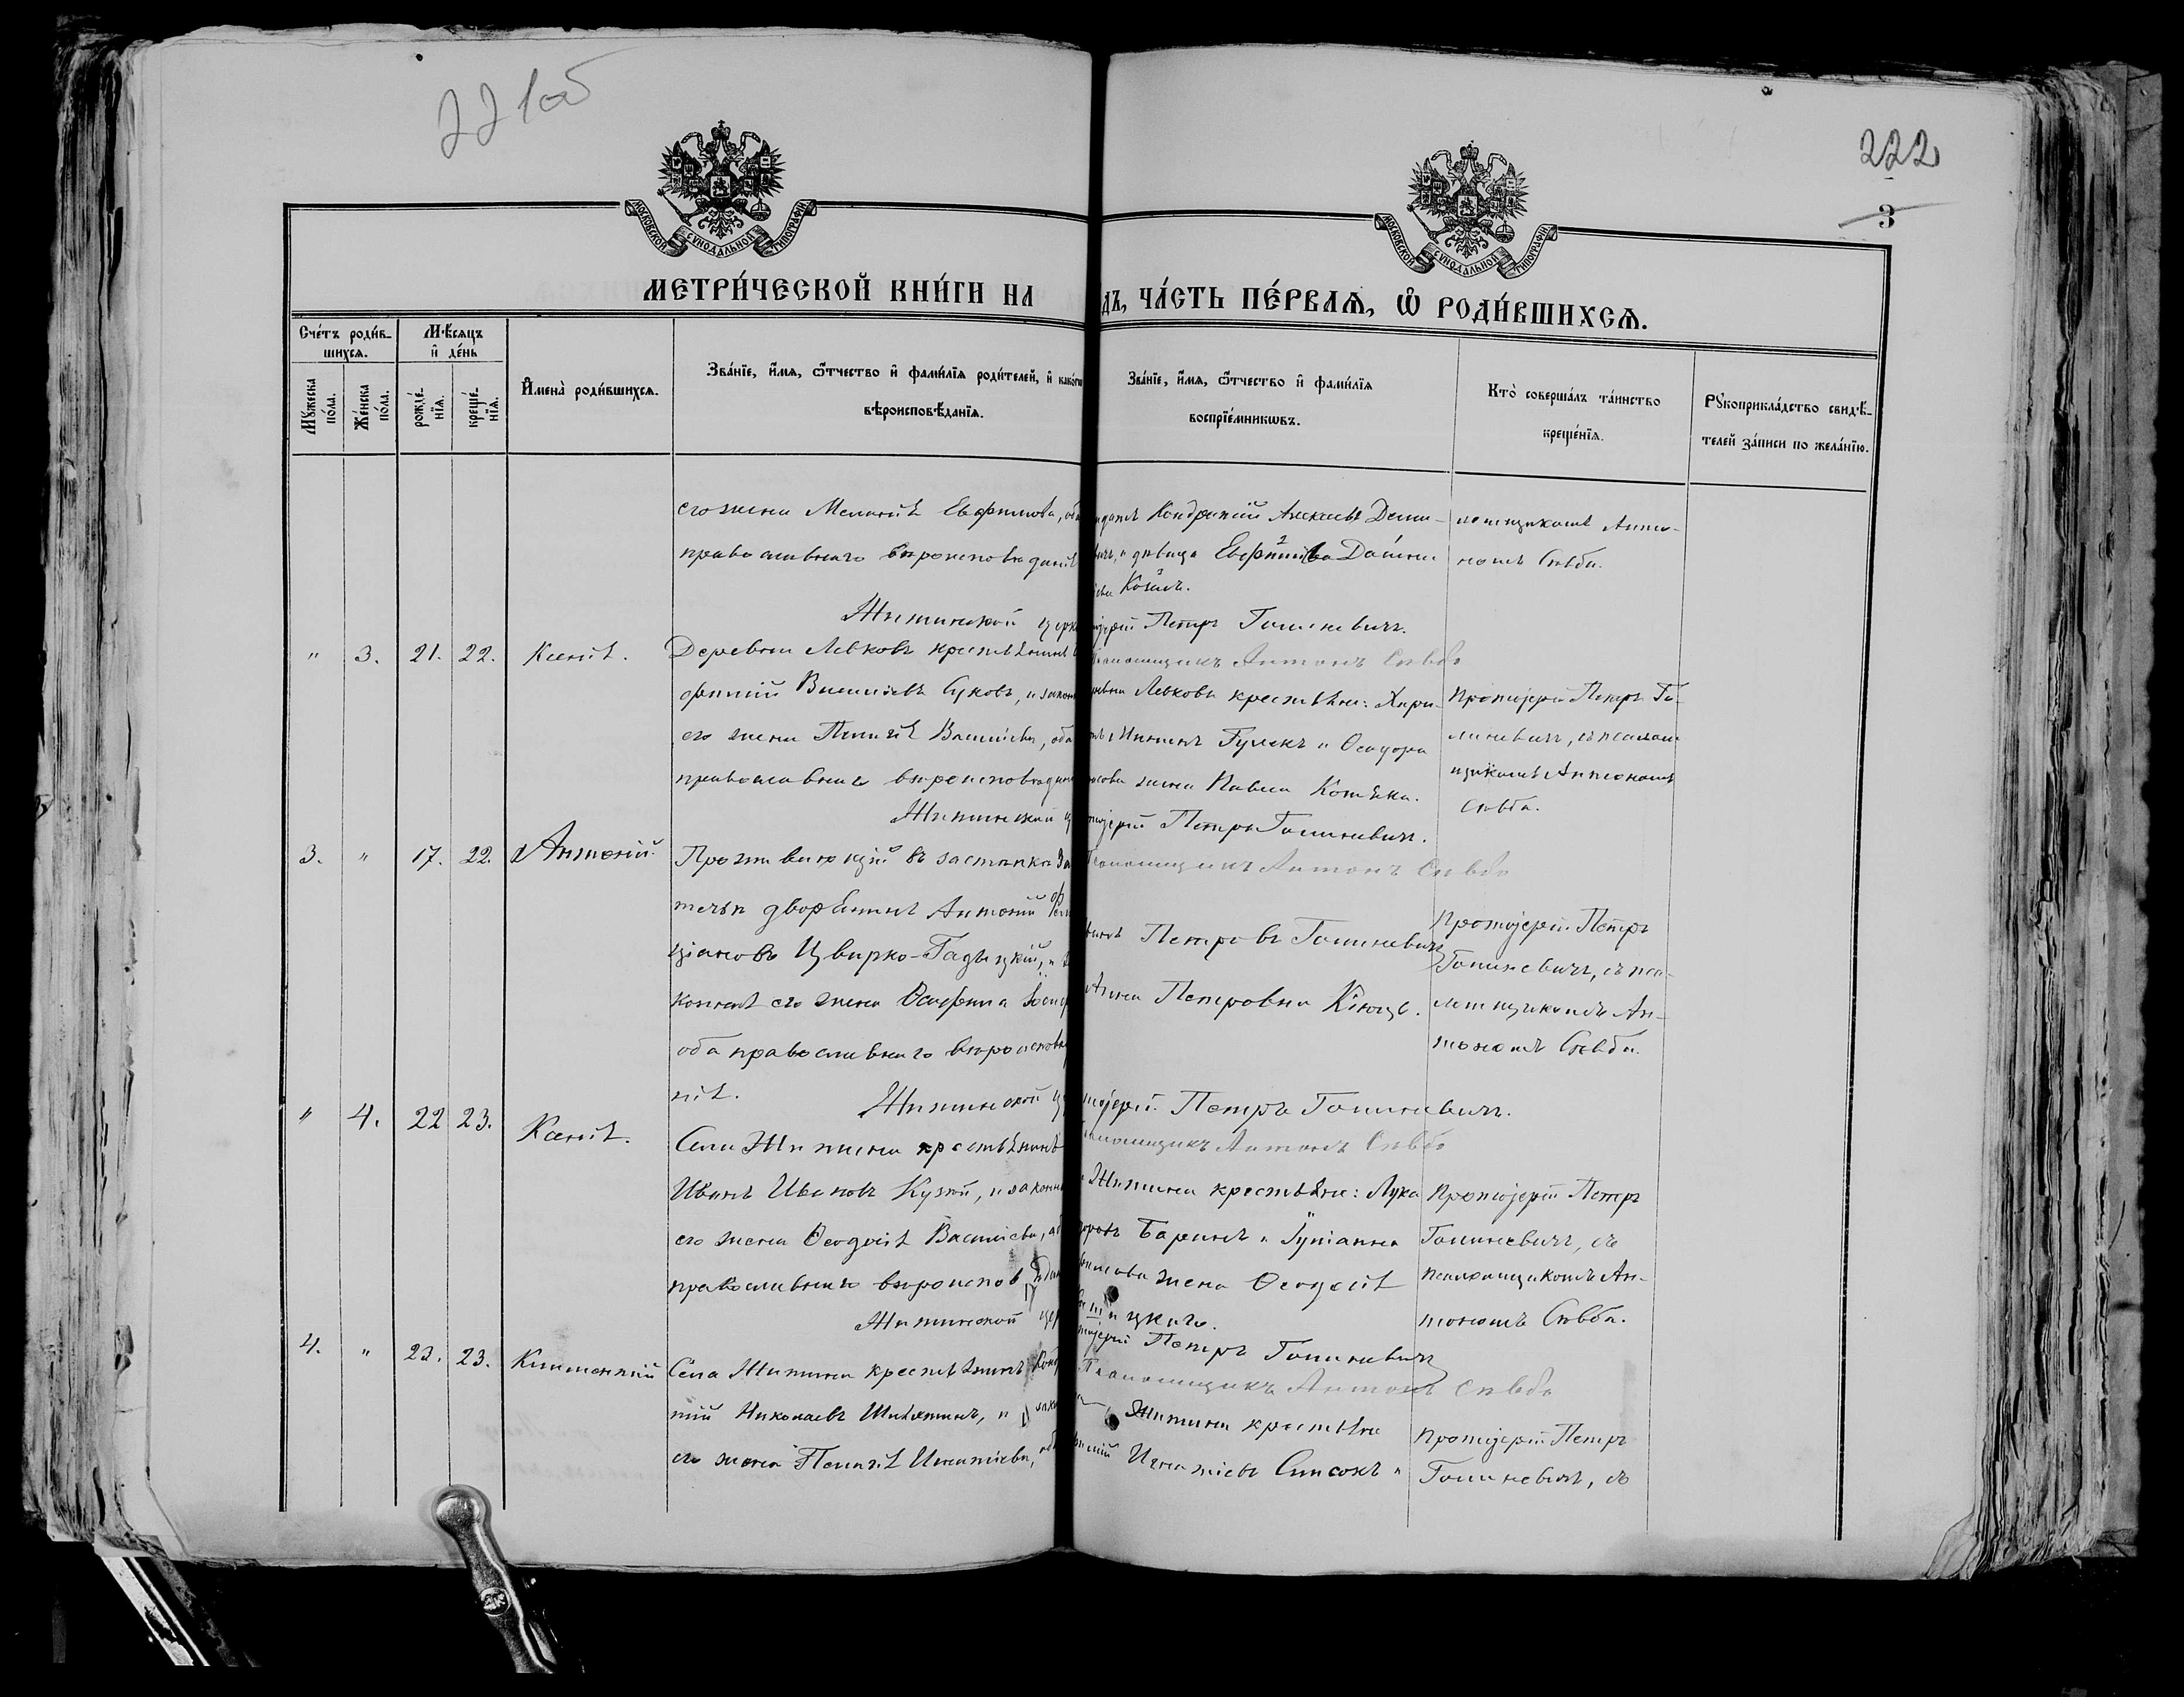 221об
222
3
МОСКОВСКОЙ СѴНОДАЛЬНОЙ ТИПОГРАФІИ
МОСКОВСКОЙ СѴНОДАЛЬНОЙ ТИПОГРАФІИ
МЕТРИ́ЧЕСКОЙ КНИ́ГИ НА
ДЪ, ЧА́СТЬ ПЕ́РВАѦ, Ѡ РОДИ́ВШИХСѦ.
Сче́тъ роди́в-
шихсѧ.
Мꙋ́жеска
по́ла.
Же́нска
по́ла.
Мѣ́сѧцъ
и де́нь
рожде́-
нїѧ.
креще́-
нїѧ.
Имена̀ роди́вшихсѧ.
Зва́нїе, и́мѧ, ѻ́тчество и фами́лїѧ роди́телей, и како́гѡ
вѣроисповѣ́данїѧ.
Зва́нїе, и́мѧ, ѻ́тчество и фами́лїѧ
воспрїе́мникѡвъ.
Кто̀ соверша́лъ та́инство
креще́нїѧ.
Рꙋкоприкла́дство свидѣ́-
телей за́писи по жела́нїю.
его жена Меланія Евфимова, оба
православнаго вѣроисповѣданія
Кондратій Алексѣевъ
и дѣвица
Козелъ.
ломщикомъ Анто-
номъ Сѣвба.
Житинской церк
Петръ Голиневичъ.
" 3. 21. 22. Ксенія.
Деревни Левковъ крестьянинъ
фимій Васильевъ Суковъ, и закон
его жена Пелагія Васильева, оба
православнаго вѣроисповѣдан
Псаломщикъ Антонъ Сѣвба
Левковъ крестьяне: Хари-
Гулекъ и Ѳеодора
жена Павла
Протоіерей Петръ Го-
линевичъ, съ псалом-
щикомъ Антономъ
Сѣвба.
Житинской ц
Петръ Голиневичъ.
3. " 17. 22. Антоній.
Проживающій въ застѣнкѣ За
дворянинъ Антоній Фели
ціановъ Цвирко-Гадыцкій, и за
конная его жена Іосиф
оба православнаго вѣроисповѣда
нія.
Псаломщикъ Антонъ Сѣвба
Петровъ Голиневичъ
Анна Петровна
Протоіерей Петръ
Голиневичъ, съ пса-
ломщикомъ Ан-
тономъ Сѣвба.
Житинской ц
Петръ Голиневичъ.
" 4. 22 23. Ксенія.
Села Житина крестьянинъ
Иванъ Ивановъ , и законн
его жена Ѳеодосія Васильева, об
православнаго вѣроисповѣдан
Псаломщикъ Антонъ Сѣвба
Житина крестьяне: Лука
Баринъ и Іуліанна
жена Ѳеодосія
Протоіерей Петръ
Голиневичъ, съ
псаломщикомъ Ан-
тономъ Сѣвба.
Житинской цер
Петръ Голиневичъ
4. " 23. 23. Климентій
Села Житина крестьянинъ Конд
тій Николаевъ , и зако
его жена Пелагія Игнатіева, оба
Псаломщикъ Антонъ Сѣвба
Житина крестьяне
Игнатіевъ и
Протоіерей Петръ
Голиневичъ, съ